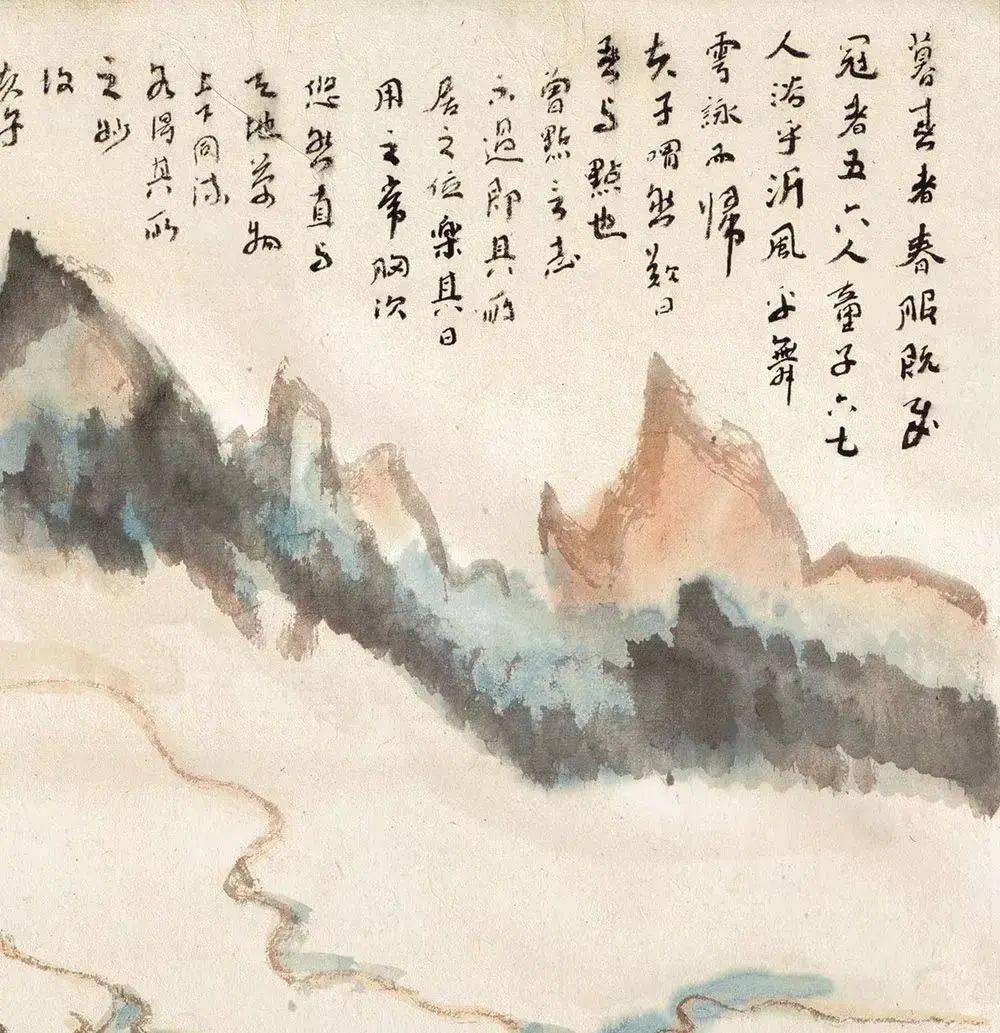 暮春者春服既成
冠者五六人童子六七
人浴乎沂風乎舞
雩詠而歸
夫子喟然歎曰
吾与點也
曾點言志
不過即其所
居之位樂其日
用之常胸次
悠然直与
天地萬物
上下同流
各得其所
之妙